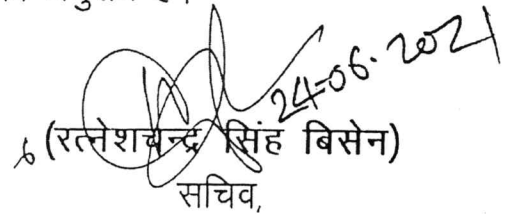 24-06-2021
(रत्नेशचन्द्र सिंह बिसेन)
सचिव,